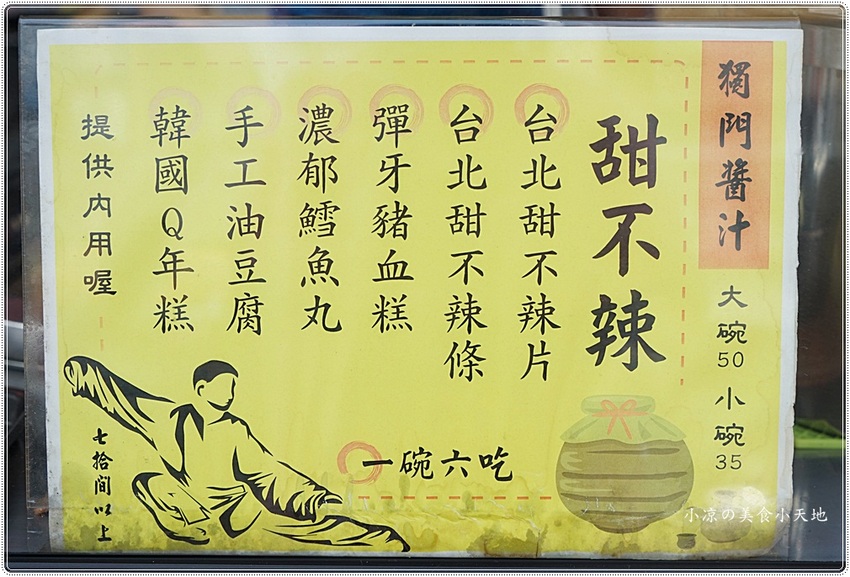 獨門醬汁
大碗50 小碗35
甜不辣
台北甜不辣片
台北甜不辣條
彈牙豬血糕
濃郁鱈魚丸
手工油豆腐
韓國Q年糕
提供內用喔
一碗六吃
七拾間以上
小凉の美食小天地